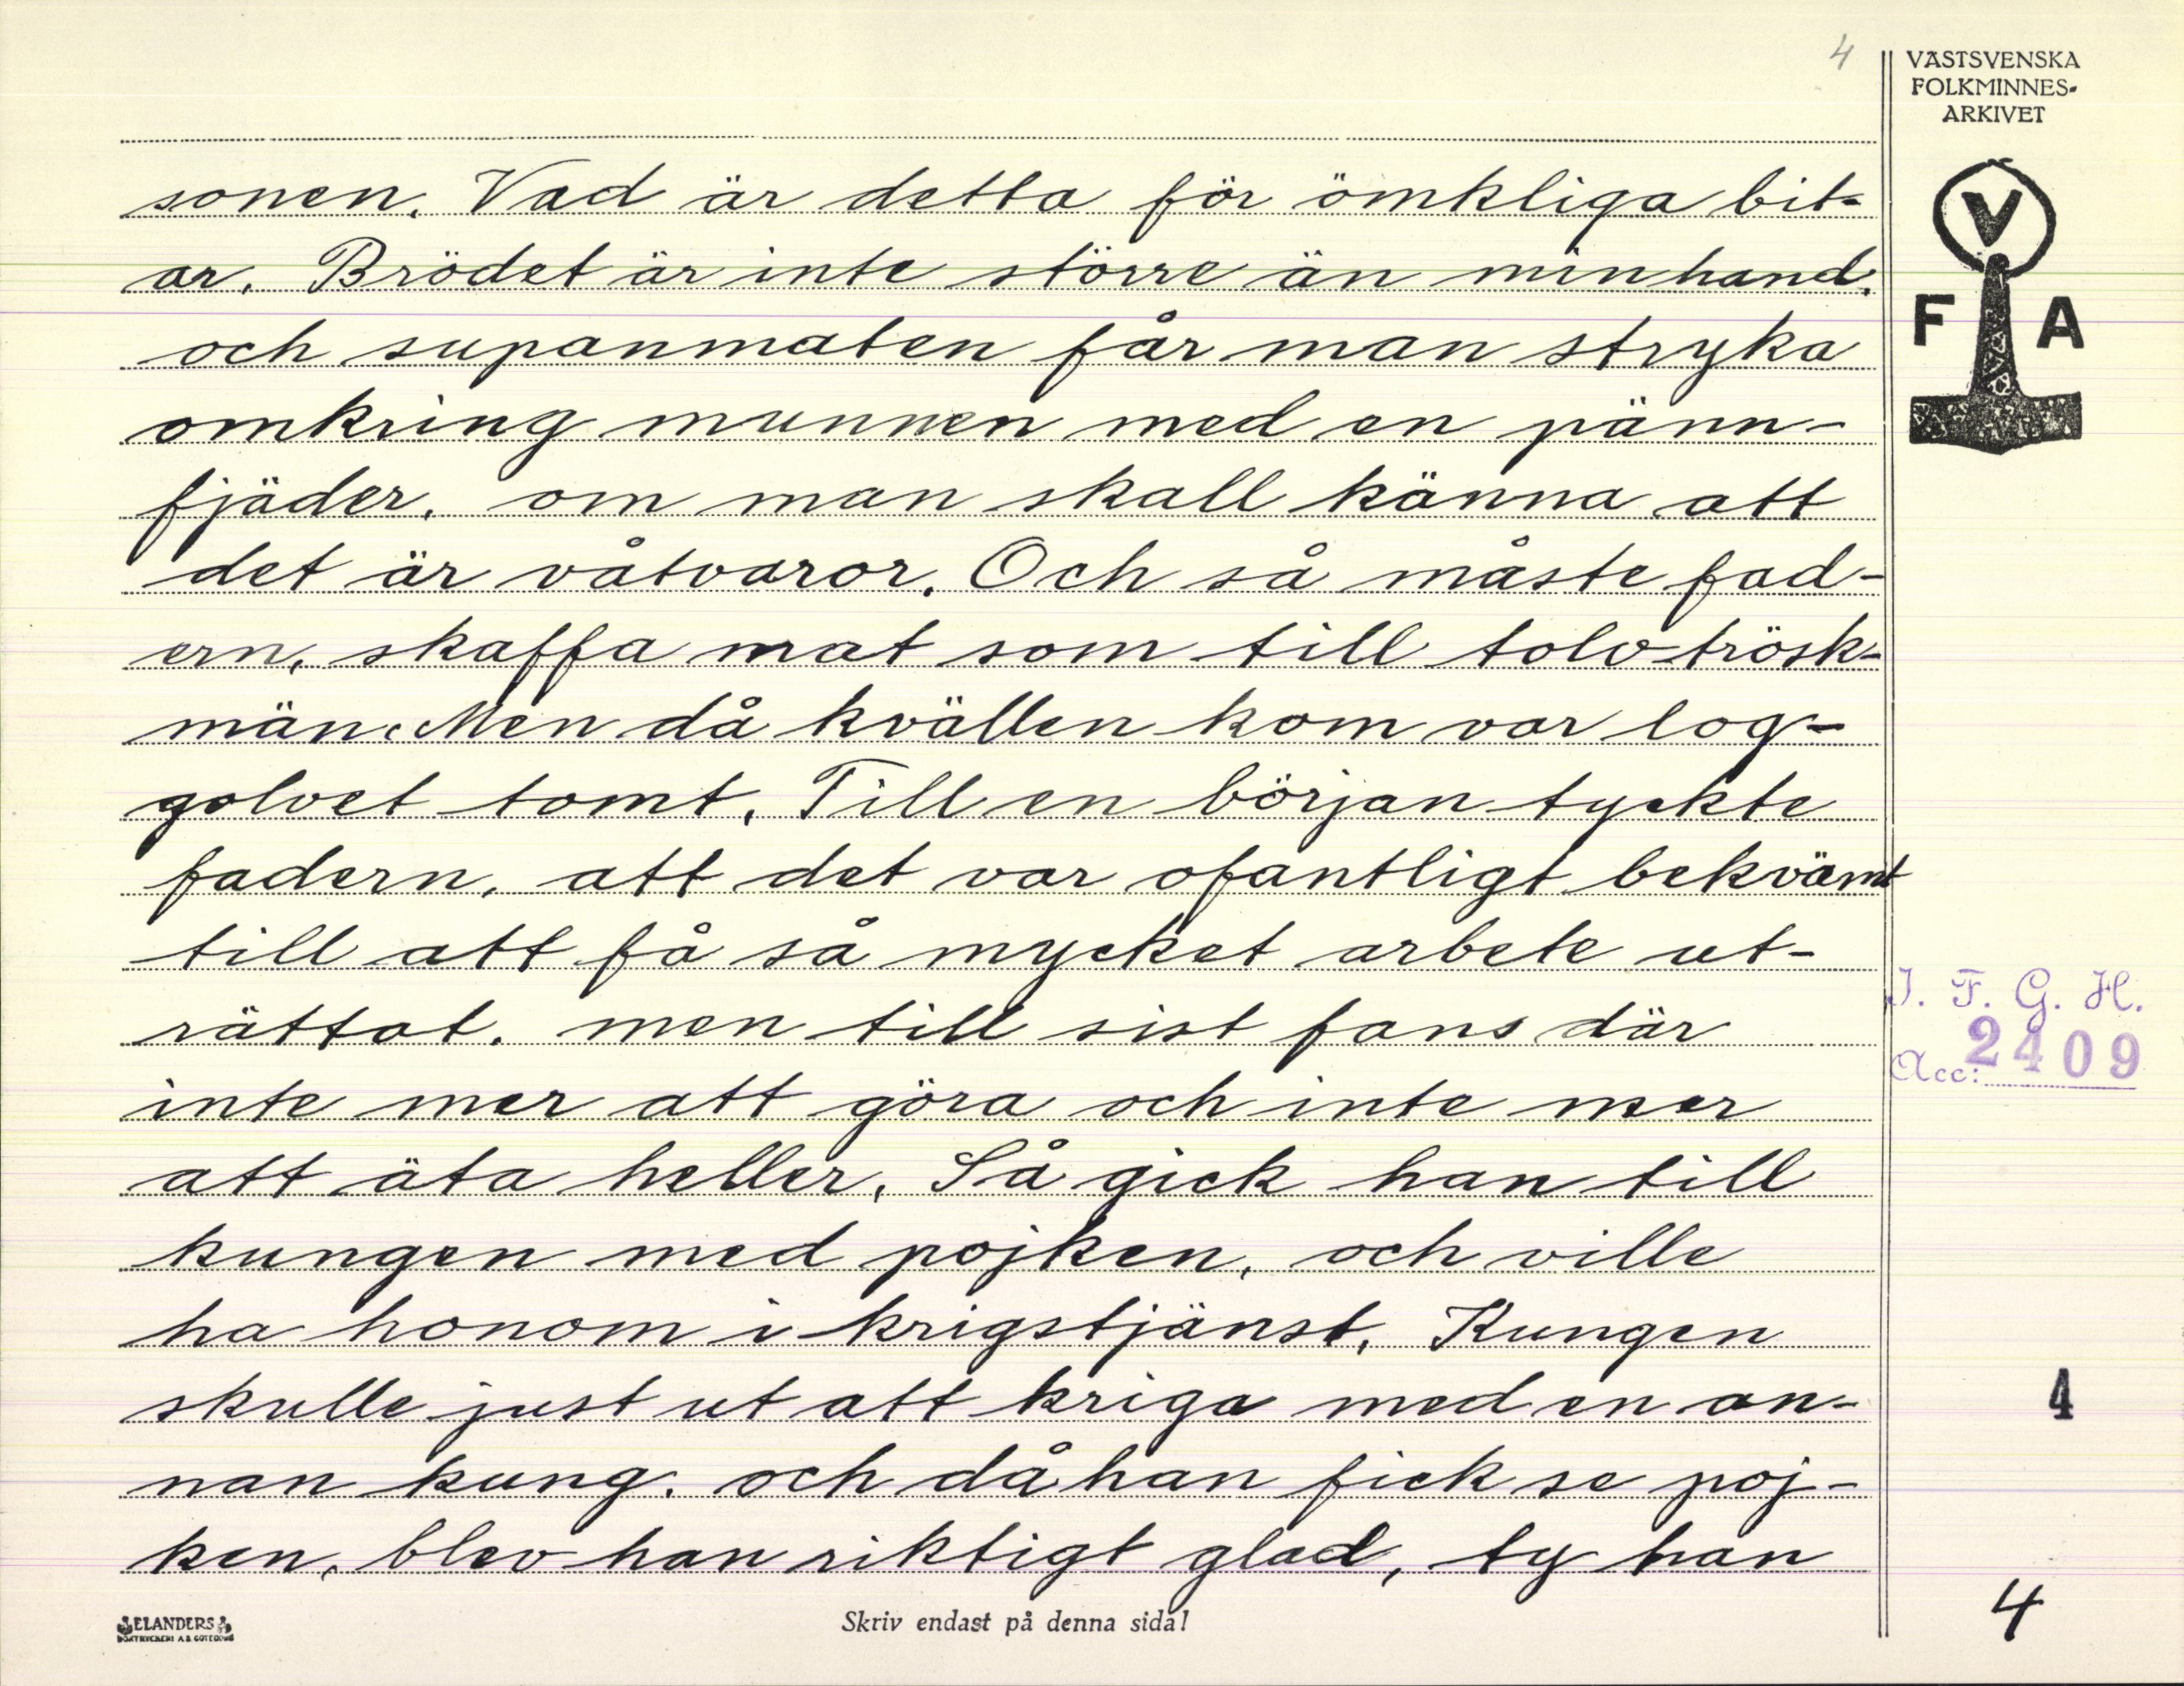 4
VÄSTSVENSKA
FOLKMINNES-
ARKIVET
V
F A
sonen. Vad är detta för ömkliga bit-
ar. Brödet är inte större än min hand.
och supanmaten får man stryka
omkring munnen med en pänn-
fjäder. om man skall känna att
det är våtvaror. Och så måste fad-
ern, skaffa mat som till tolv trösk-
män. Men då kvällen kom var log-
golvet tomt. Till en början tyckte
fadern, att det var ofantligt bekvämt
till att få så mycket arbete ut-
rättat. men till sist fans där
inte mer att göra och inte mer
att äta heller. Så gick han till
kungen med pojken, och ville
ha honom i krigstjänst. Kungen
skulle just ut att kriga med en an-
nan kung. och då han fick se poj-
ken, blev han riktigt glad, ty han
I. F. G. H.
Acc: 2409
4
4
ELANDERS
BOKTRYCKERI A.B. GÖTEBORG
Skriv endast på denna sida!